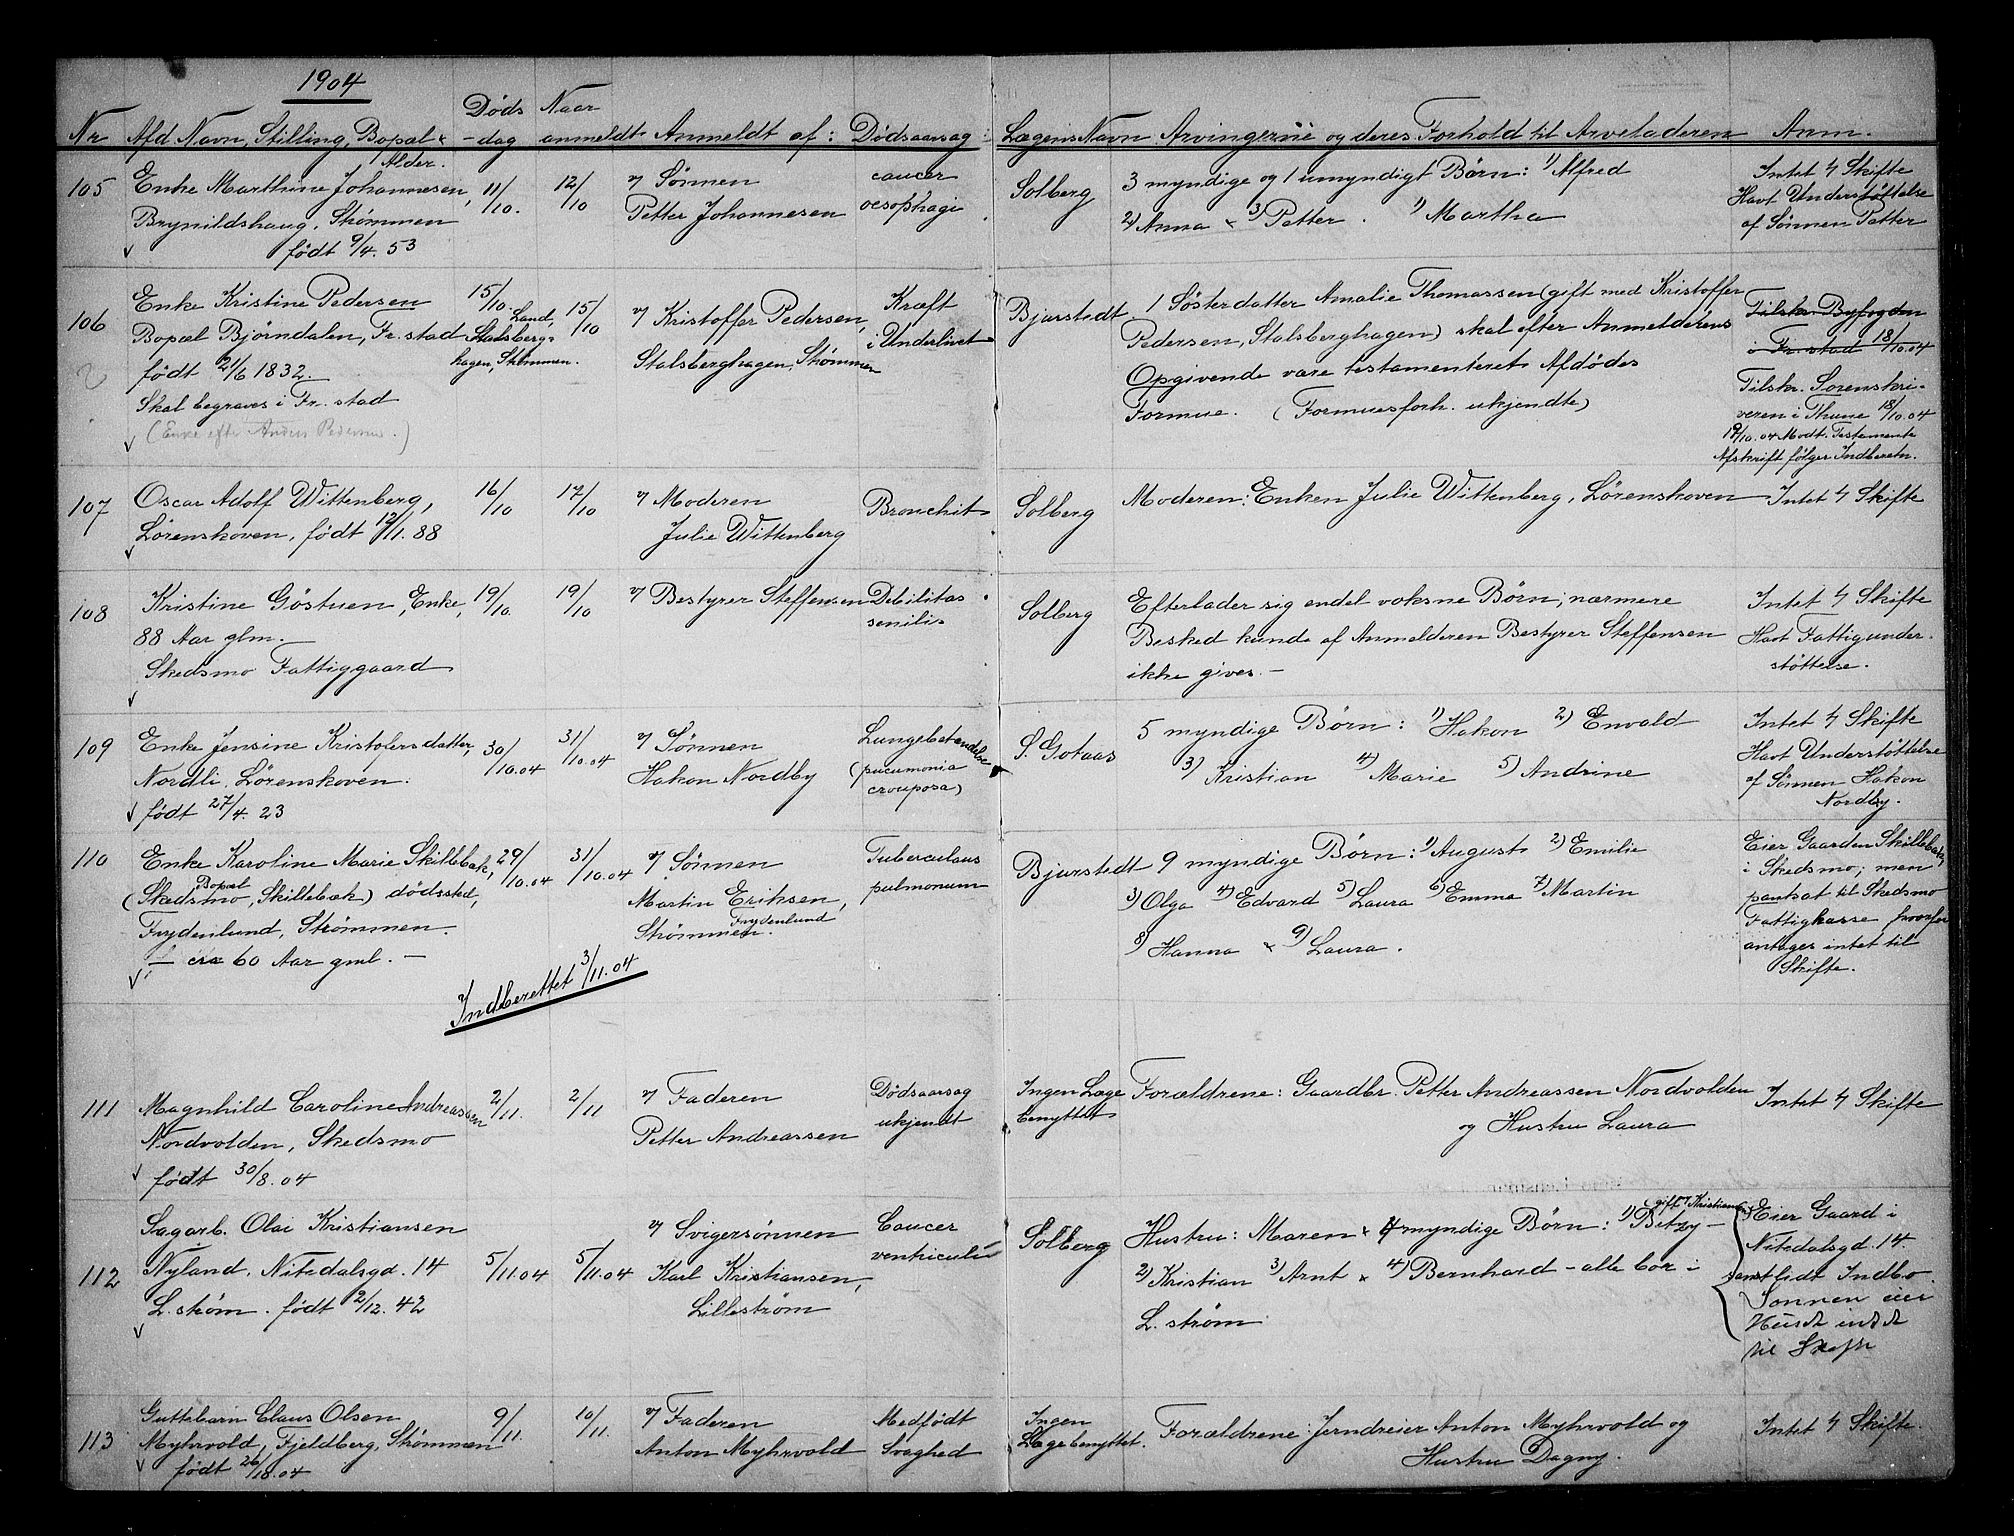 1904
Nr Afd Navn, Stilling, Bopæl & Alder. Döds-dag Naar anmeldt Anmeldt af: Dödsaarsag: Lægens Navn Arvingerne og deres Forhold til Arveladeren Anm.
105
Enke Marthine Johannesen,
Brynildshaug, Strømmen
født 9/4. 53
11/10.
12/10
v/ Sönnen
Petter Johannesen
cancer
oesophagi
Solberg
3 myndige og 1 umyndigt Börn: 1) Alfred
2) Anna & 3) Petter. 1) Martha
Intet t/ Skifte
Havt Understøttelse
af Sönnen Petter
106
Enke Kristine Pedersen
Bopæl Björndalen, Fr. stad
født 21/6 1832.
Skal begraves i Fr. stad
(Enke efter Anders Pedersen.)
15/10 Sand,
Stalsberg-
hagen, Strømmen.
15/10
v/ Kristoffer Pedersen,
Stalsberghagen, Strømmen
Kræft
i Underlivet
Bjurstedt
1 Söster datter Amalie Thomassen (gift med Kristoffer
Pedersen, Stalsberghagen) skal efter Anmelderens
Opgivende være testamenteret Afdödes
Formue. (Formuesforh. ukjendte)
Tilskr. Byfogden
i Fr. stad 18/10.04
Tilskr. Sorenskri-
veren i Thune 18/10.04
19/10.04 Modt. Testamente
Afskrift følger Indberetn.
107
Oscar Adolf Wittenberg,
Lörenskoven, født 12/1. 88
16/10
17/10
v/ Moderen
Julie Wittenberg
Bronchit
Solberg
Moderen: Enken Julie Wittenberg, Lörenskoven
Intet t/ Skifte
108
Kristine Göstuen, Enke,
88 Aar glm.
Skedsmo Fattiggaard
19/10.
19/10
v/ Bestyrer Steffensen
Debilitas
senilis
Solberg
Efterlader sig endel voksne Börn; nærmere
Besked kunde af Anmelderen Bestyrer Steffensen
ikke gives. -
Intet t/ Skifte
Havt Fattigunder-
støttelse.
109
Enke Jensine Kristofersdatter,
Nordli, Lörenskoven.
født 27/4. 23
30/10.04
31/10.04
v/ Sönnen
Hakon Nordby
Lungebetændelse
(pneumonia
crouposa)
S. Gotaas
5 myndige Börn: 1) Hakon 2) Envald
3) Kristian 4) Marie 5) Andrine
Intet t/ Skifte
Havt Understøttelse
af Sönnen Hakon
Nordby.
110
Enke Karoline Marie Skillebæk,
Bopæl
(Skedsmo, Skillebæk) dödssted,
Frydenlund, Strømmen
- cra 60 Aar gml. -
29/10.04
31/10.04
v/ Sönnen
Martin Eriksen,
Frydenlund
Strømmen.
Tuberculous
pulmonum
Bjurstedt
9 myndige Börn: 1) August 2) Emilie
3) Olga 4) Edvard 5) Laura 6) Emma 7) Martin
8) Hanna & 9) Laura.
Eier Gaarden Skillebæk,
i Skedsmo; men
pantsat til Skedsmo
Fattigkasse, hvorfor
antages intet til
Skifte.
Indberettet 3/11.04
111
Magnhild Caroline Andreassen
Nordvolden, Skedsmo
født 30/8.04
2/11.
2/11
v/ Faderen
Petter Andreassen
Dödsaarsag
ukjendt
Ingen Læge
benyttet
Forældrene: Gaardbr. Petter Andreassen Nordvolden
og Hustru Laura
Intet t/ Skifte
112
Sagarb. Olai Kristiansen
Nyland, Nitedalsgd. 14
L. strøm. født 2/12. 42
5/11.04
5/11.04
v/ Svigersönnen
Karl Kristiansen,
Lilleström
Cancer
ventriculi
Solberg
gift v/ Kristiansen
Hustru: Maren & 4 myndige Börn: 1) Betzy -
2) Kristian 3) Arnt & 4) Bernhard - alle bor i
L. ström
Eier Gaard i
Nitedalsgd. 14.
samt lidt Indbo
Sönnen eier
Huset intet
til Skifte
113
Guttebarn Claus Olsen
Myhrvold, Fjeldberg, Strømmen
født 26/10.04
9/11.
10/11.
v/ Faderen
Anton Myhrvold
Medfödt
Svaghed
Ingen
Læge benyttet.
Forældrene: Jerndreier Anton Myhrvold og
Hustru Dagny.
Intet t/ Skifte.